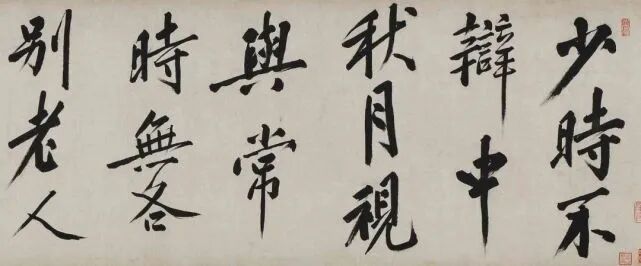 少時不
辯中
秋月視
與常
時無各
別老人